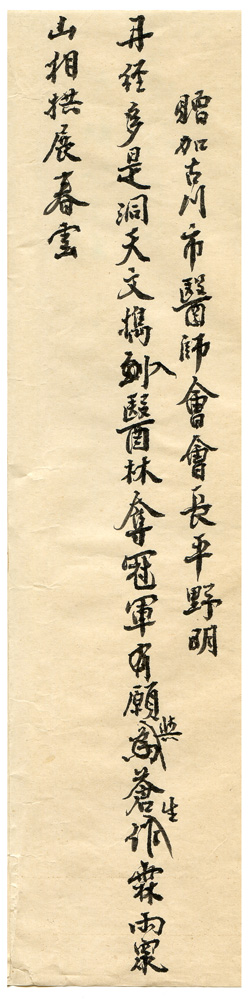 贈加古川市醫師會會長平野明
丹經多是洞天文攜入醫林奪冠軍有願與蒼生霖雨眾
山相拱展春雲